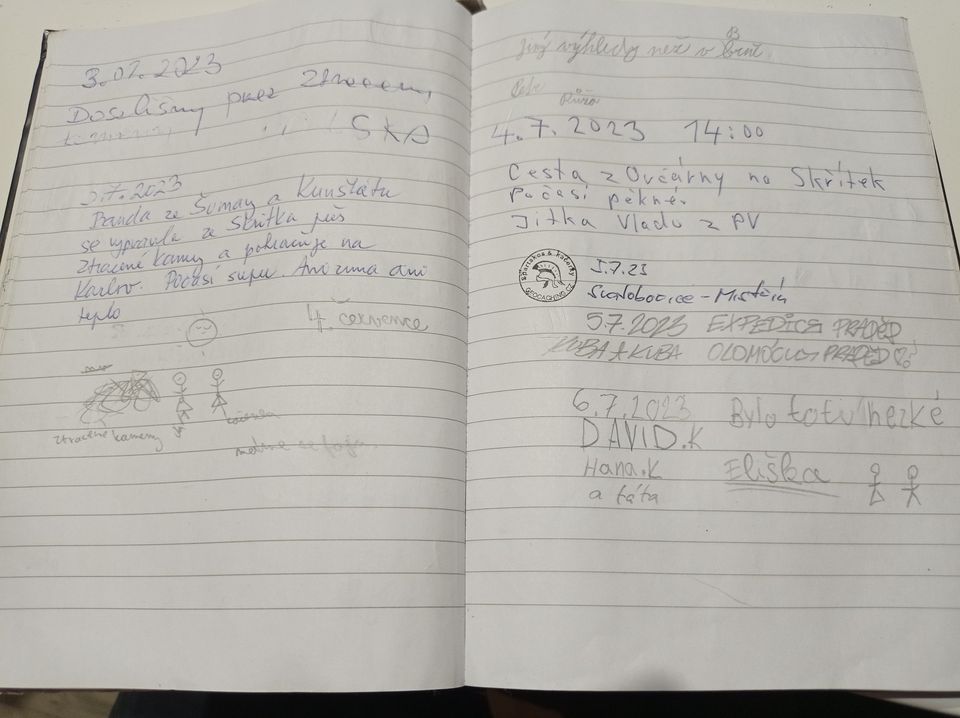 3.07.2023
Došli jsme přez Ztracený
kameny
SKA
3.7.2023
Banda ze Šumav a Kunštátu
se vypravila ze Skřítka přes
Ztracené kamy a pokračuje na
Karlov. Počasí supr. Ani zima ani
teplo
4. července
ztracené kameny
jiný výhledy než v Brně.
B
Petr
Růža
4.7.2023 14:00
Cesta z Ovčárny na Skřítek
Počasí pěkné.
Jitka Vlado z PV
GEOCACHING.CZ
5.7.23
Svatobořice - Mistřín
5.7.2023 EXPEDICE PRADĚD
KUBA + KUBA OLOMOUC - PRADĚD
6.7.2023 Bylo to tu hezké
DAVID.K
Hana.K Eliška
a táta